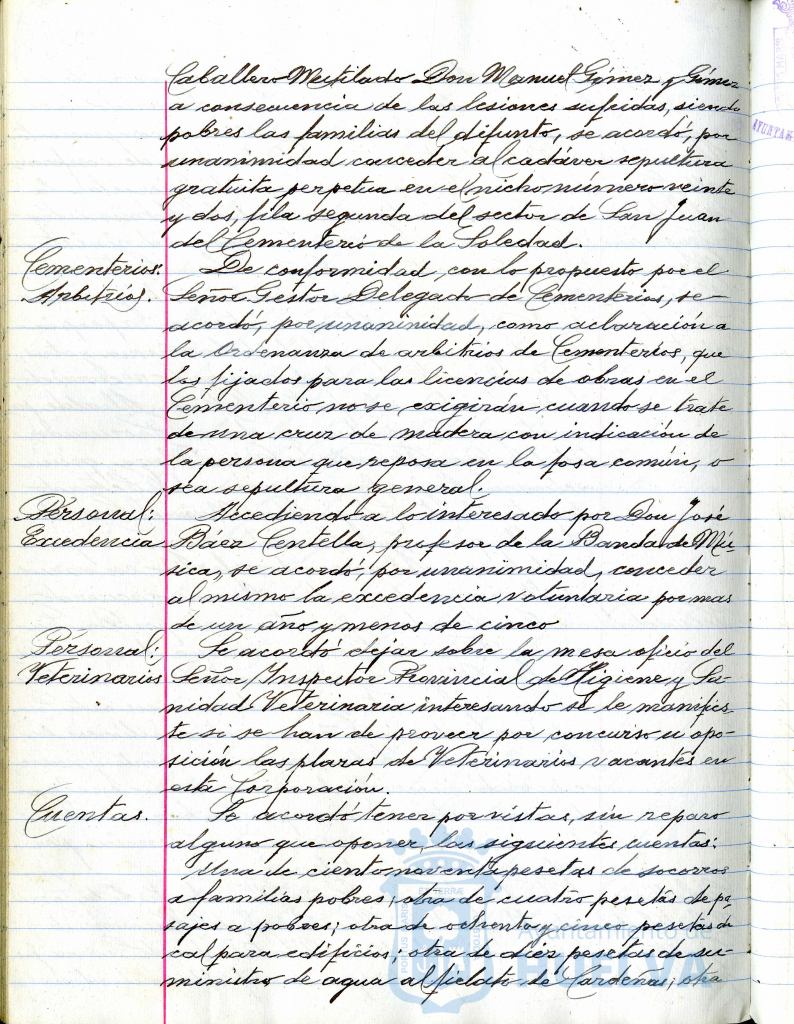 Caballero Mutilado Don Manuel Gómez y Gómez
a consecuencia de las lesiones sufridas, siendo
pobres las familias del difunto, se acordó, por
unanimidad conceder al cadáver sepultura
gratuita perpetua en el nicho número veinte
y dos, fila segunda del sector de San Juan
del Cementerio de la Soledad.
Cementerios:
Arbitrios.
De conformidad, con lo propuesto por el
Señor Gestor Delegado de Cementerios, se
acordó, por unaninidad, como aclaración a
la Ordenanza de arbitrios de Cementerios, que
los fijados para las licencias de obras en el
Cementerio, no se exigirán cuando se trate
de una cruz de madera con indicación de
la persona que reposa en la fosa común, o
sea sepultura general.
Personal:
Excedencia
Accediendo a lo interesado por Don José
Báez Centella, profesor de la Banda de Mú-
sica, se acordó, por unanimidad, conceder
al mismo la excedencia voluntaria por mas
de un año y menos de cinco
Personal:
Veterinarios
Se acordó dejar sobre la mesa oficio del
Señor Inspector Provincial de Higiene y Sa-
nidad Veterinaria interesando se le manifies-
te si se han de proveer por concurso u opo-
sición las plazas de Veterinarios vacantes en
esta Corporación.
Cuentas.
Se acordó tener por vistas, sin reparo
alguno que oponer, las siguientes cuentas:
Una de ciento noventa pesetas de socorros
a familias pobres; otra de cuatro pesetas de pa-
sajes a pobres; otra de ochenta y cinco pesetas de
cal para edificios; otra de diez pesetas de su-
ministro de agua al fielato de Cardeñas; otra
Ayuntamiento de
HUELVA